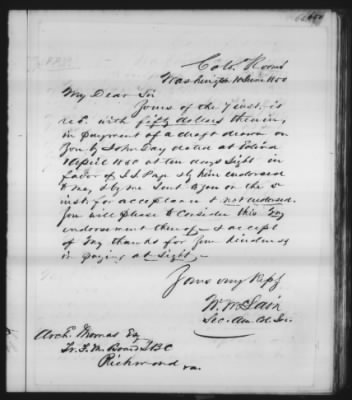 Col. Rooms
Washington 10 June 1850
My Dear Sir
Yours of the 7 inst. is
rec'd. with fifty dollars therein,
in payment of a draft drawn on
you by John Day dated at
1 April 1850 at ten days sight in
favor of J. S. by him endorsed
to me, & by me sent to you on the 5
inst for acceptance & not endorsed.
You will please to consider this my
endorsement thereof & accept
of my thanks for your kindness
in paying at sight.
Yours very Respy.
W. McLain
Sec. Am. Col. Soc.
Arch. Thomas Esq
Tr. F. M. Board SBC
Richmond
Va.